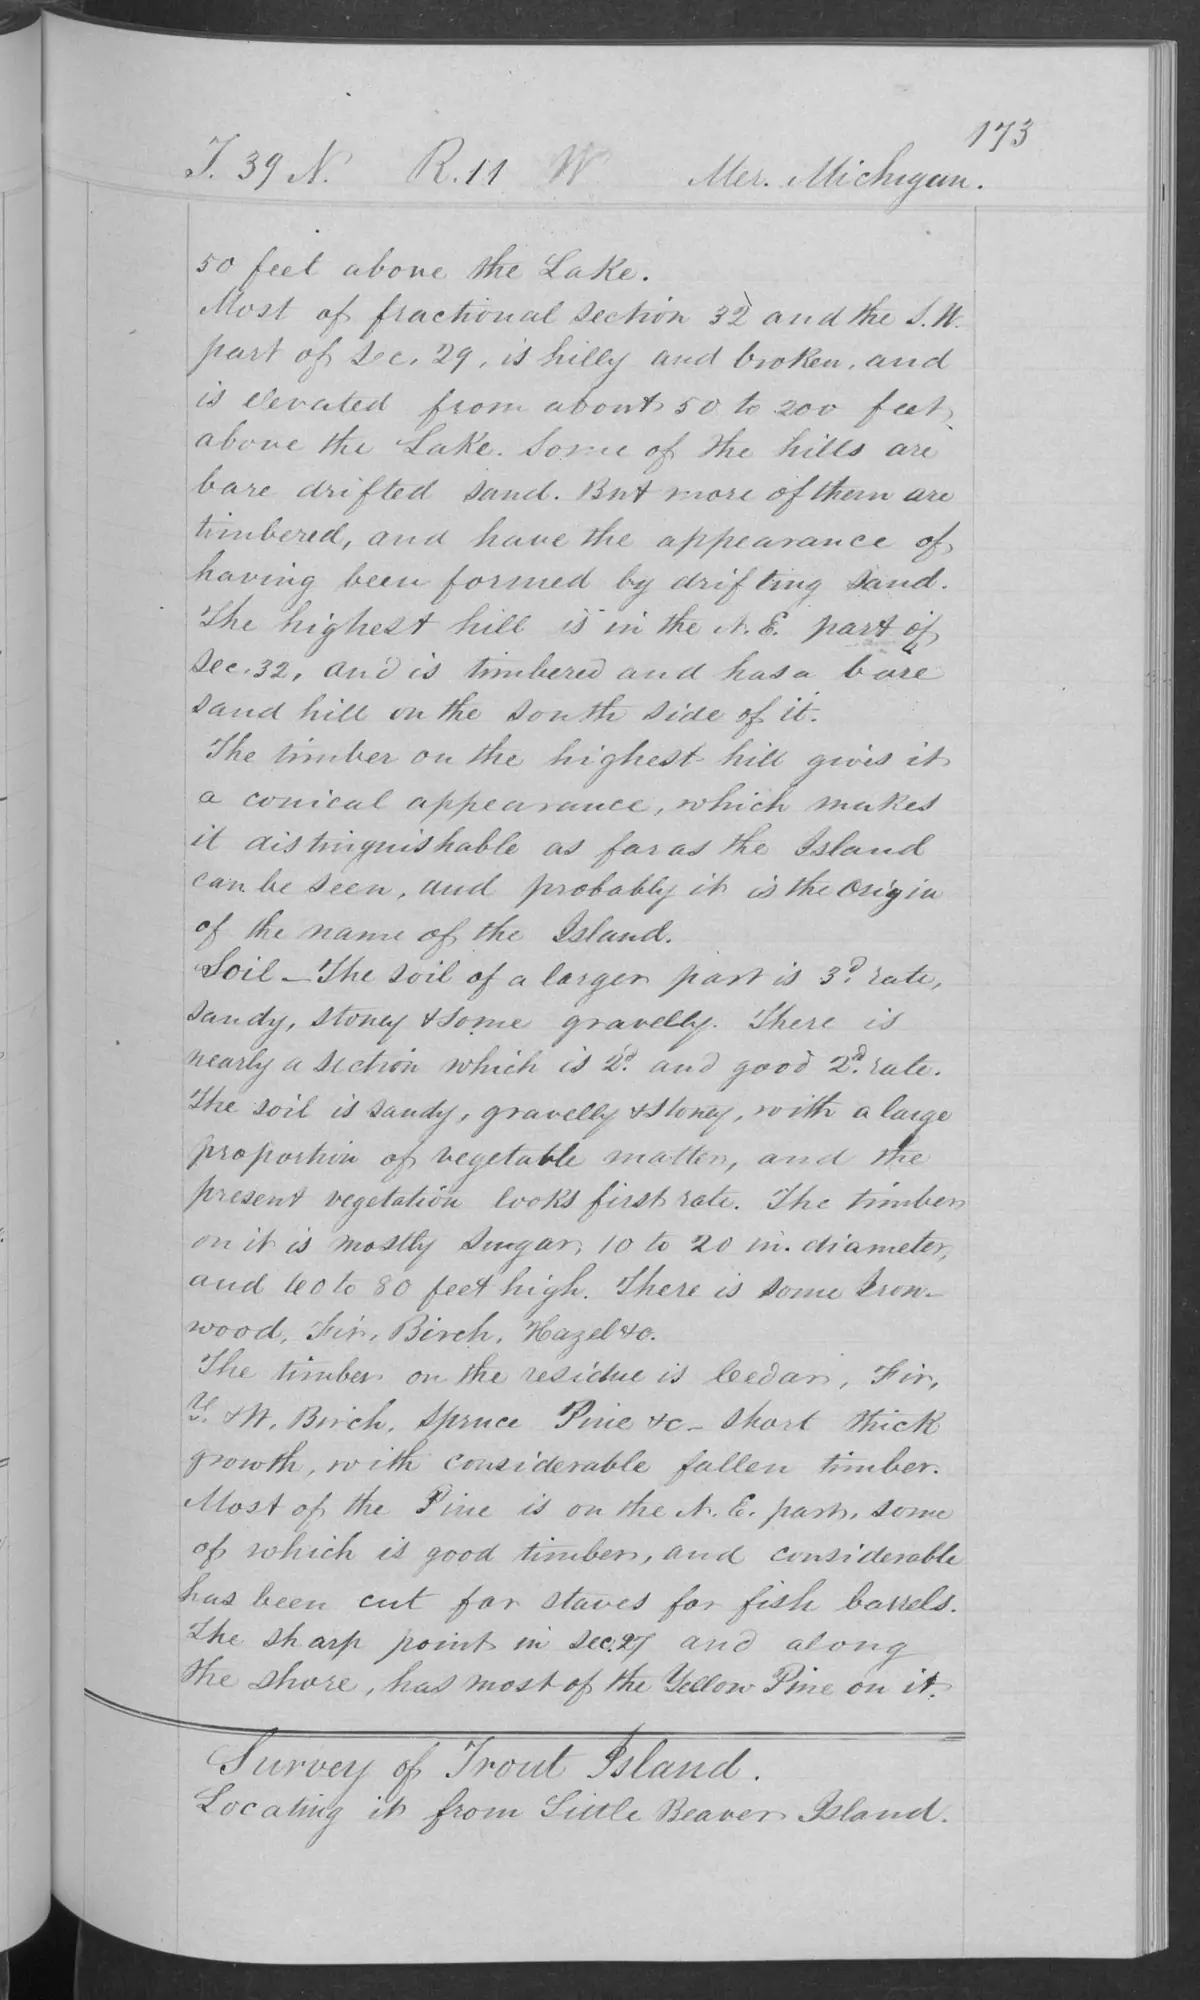 173
T. 39 N. R. 11 W Mer. Michigan.
50 feet above the Lake.
Most of fractional section 32 and the S.W.
part of Sec. 29, is hilly and broken, and
is elevated from about 50 to 200 feet
above the Lake. Some of the hills are
bare drifted sand. But more of them are
timbered, and have the appearance of
having been formed by drifting sand.
The highest hill is in the N.E. part of
Sec. 32, and is timbered and has a bare
sand hill on the south side of it.
The timber on the highest hill gives it
a conical appearance, which makes
it distinguishable as far as the Island
can be seen, and probably it is the origin
of the name of the Island.
Soil — The soil of a larger part is 3d. rate,
sandy, stoney & some gravelly. There is
nearly a section which is 2d. and good 2d. rate.
The soil is sandy, gravelly & stoney, with a large
proportion of vegetable matter, and the
present vegetation looks first rate. The timber
on it is mostly Sugar, 10 to 20 in. diameter,
and 60 to 80 feet high. There is some Iron-
wood, Fir, Birch, Hazel &c.
The timber on the residue is Cedar, Fir,
Y. & W. Birch, Spruce Pine &c - short thick
growth, with considerable fallen timber.
Most of the Pine is on the N.E. part, some
of which is good timber, and considerable
has been cut for staves for fish barrels.
The sharp point in Sec. 27 and along
the shore, has most of the Yellow Pine on it.
Survey of Trout Island.
Locating it from Little Beaver Island.